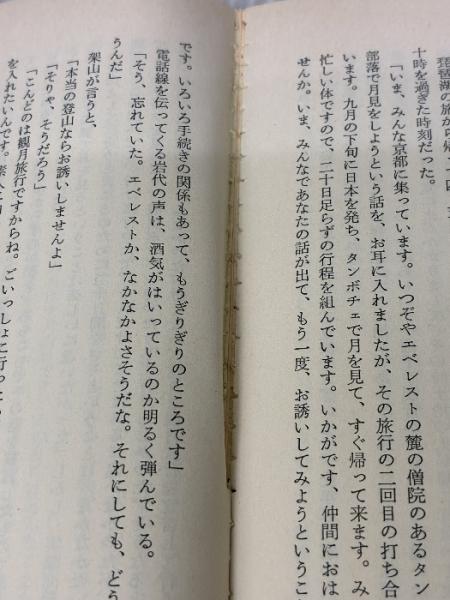 琵琶湖の旅から帰
十時を過ぎた時刻だった。
「いま、みんな京都に集っています。いつぞやエベレストの麓の僧院のあるタン
部落で月見をしようという話を、お耳に入れましたが、その旅行の二回目の打ち合
います。九月の下旬に日本を発ち、タンボチェで月を見て、すぐ帰って来ます。み
忙しい体ですので、二十日足らずの行程を組んでいます。いかがです、仲間におは
せんか。いま、みんなであなたの話が出て、もう一度、お誘いしてみようというこ
です。いろいろ手続きの関係もあって、もうぎりぎりのところです」
電話線を伝ってくる岩代の声は、酒気がはいっているのか明るく弾んでいる。
「そう、忘れていた。エベレストか、なかなかよさそうだな。それにしても、どう
うんだ」
架山が言うと、
「本当の登山ならお誘いしませんよ」
「そりゃ、そうだろう」
「こんどのは観月旅行ですからね。ごいっしょに行った
を入れたいんです。素人に